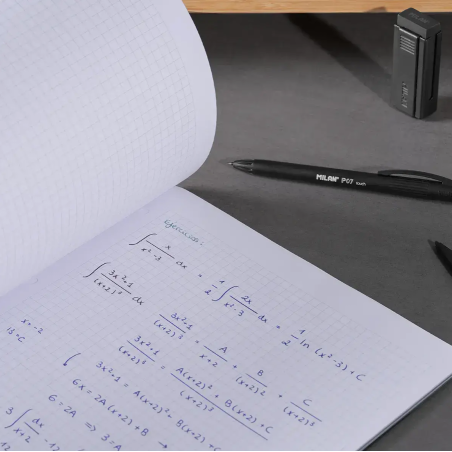 Ejercicios:
∫ x/(x²-3) dx = 1/2 ∫ 2x/(x²-3) dx = 1/2 ln (x²-3) + C
∫ (3x²+1)/(x+2)³ dx
(3x²+1)/(x+2)³ = A/(x+2) + B/(x+2)² + C/(x+2)³
(3x²+1)/(x+2)³ = (A(x+2)² + B(x+2) + C)/(x+2)³
3x²+1 = A(x+2)² + B(x+2) + C
x=-2
13=C
6x = 2A(x+2) + B →
6=2A ⇒ 3=A
3 ∫ dx/(x+2) - 12
MILAN P07